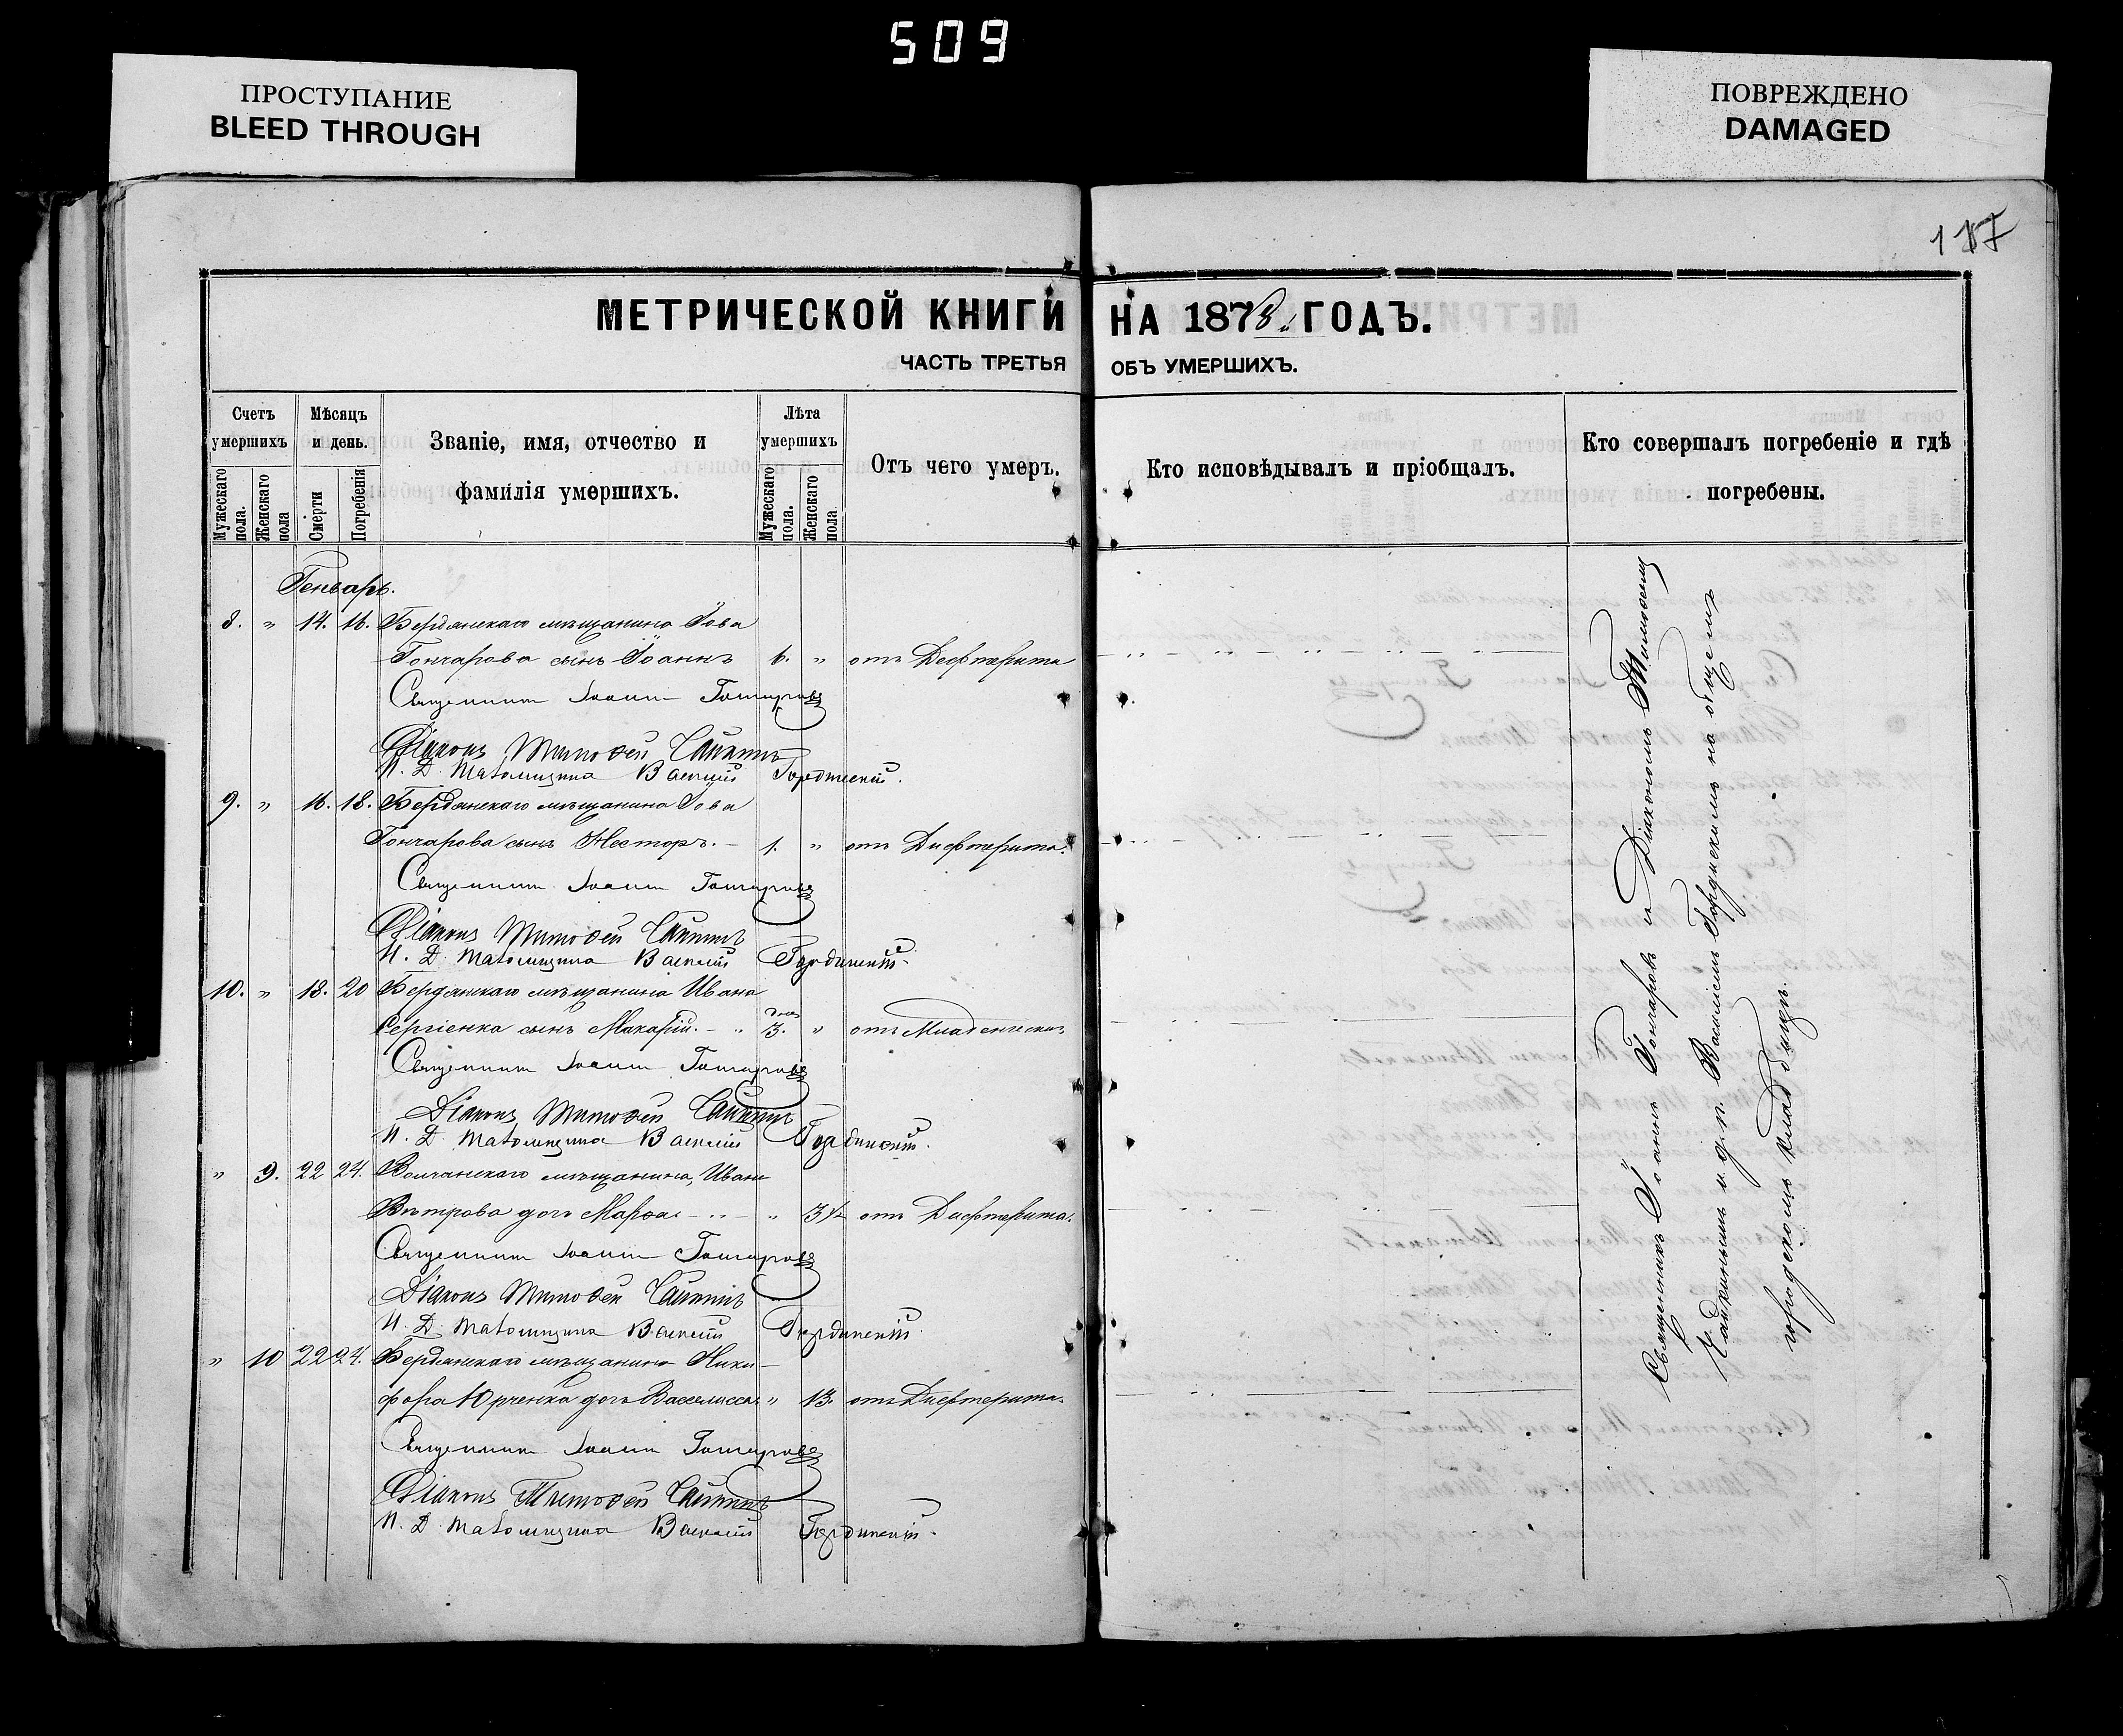 509
ПРОСТУПАНИЕ
BLEED THROUGH
ПОВРЕЖДЕНО
DAMAGED
117
МЕТРИЧЕСКОЙ КНИГИ НА 1878й ГОДЪ.
ЧАСТЬ ТРЕТЬЯ ОБЪ УМЕРШИХЪ.
Счетъ умершихъ
Мужескаго пола.
Женскаго пола
Мѣсяцъ и день.
Смерти
Погребенія
Званіе, имя, отчество и
фамилія умершихъ.
Лѣта умершихъ
Мужескаго пола.
Женскаго пола
Отъ чего умеръ.
Кто исповѣдывалъ и пріобщалъ.
Кто совершалъ погребеніе и гдѣ
погребены.
Генварь.
8. " 14. 16. Бердянскаго мѣщанина Іова
Гончарова сынъ Іоаннъ 6. " отъ Дифтерита
Священникъ Іоаннъ Гончаровъ
Діаконъ Тимоѳей
И. Д. Псаломщика Василій Гординскій.
9. " 16. 18. Бердянскаго мѣщанина Іова
Гончарова сынъ Несторъ. 1. " отъ Дифтерита.
Священникъ Іоаннъ Гончаровъ
Діаконъ Тимоѳей
И. Д. Псаломщика Василій Гординскій.
10. " 18. 20 Бердянскаго мѣщанина Ивана
Сергіенка сынъ Макарій. 3. " отъ Младенческой
Священникъ Іоаннъ Гончаровъ
Діаконъ Тимоѳей
И. Д. Псаломщика Василій Гординскій.
" 9. 22 24. Волчанскаго мѣщанина Ивана
Вѣтрова дочь Марѳа " 3½ отъ Дифтерита.
Священникъ Іоаннъ Гончаровъ
Діаконъ Тимоѳей
И. Д. Псаломщика Василій Гординскій.
" 10 22 24. Бердянскаго мѣщанина Ники-
фора Юрченка дочь Вассилисса " 13. отъ Дифтерита.
Священникъ Іоаннъ Гончаровъ
Діаконъ Тимоѳей
И. Д. Псаломщика Василій Гординскій.
Священникъ Іоаннъ Гончаровъ и Діакономъ Тимоѳеем
и. д. п. Василіемъ Гординскимъ на общемъ
городскомъ кладбищѣ.